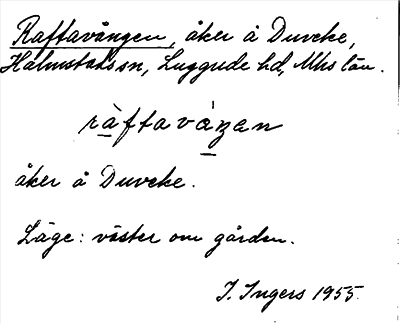 Raftavången, åker å Duveke,
Halmstads sn, Luggude hd, Mhs län.
ràftaváŋen
åker å Duveke.
Läge: väster om gården.
I. Ingers 1955.